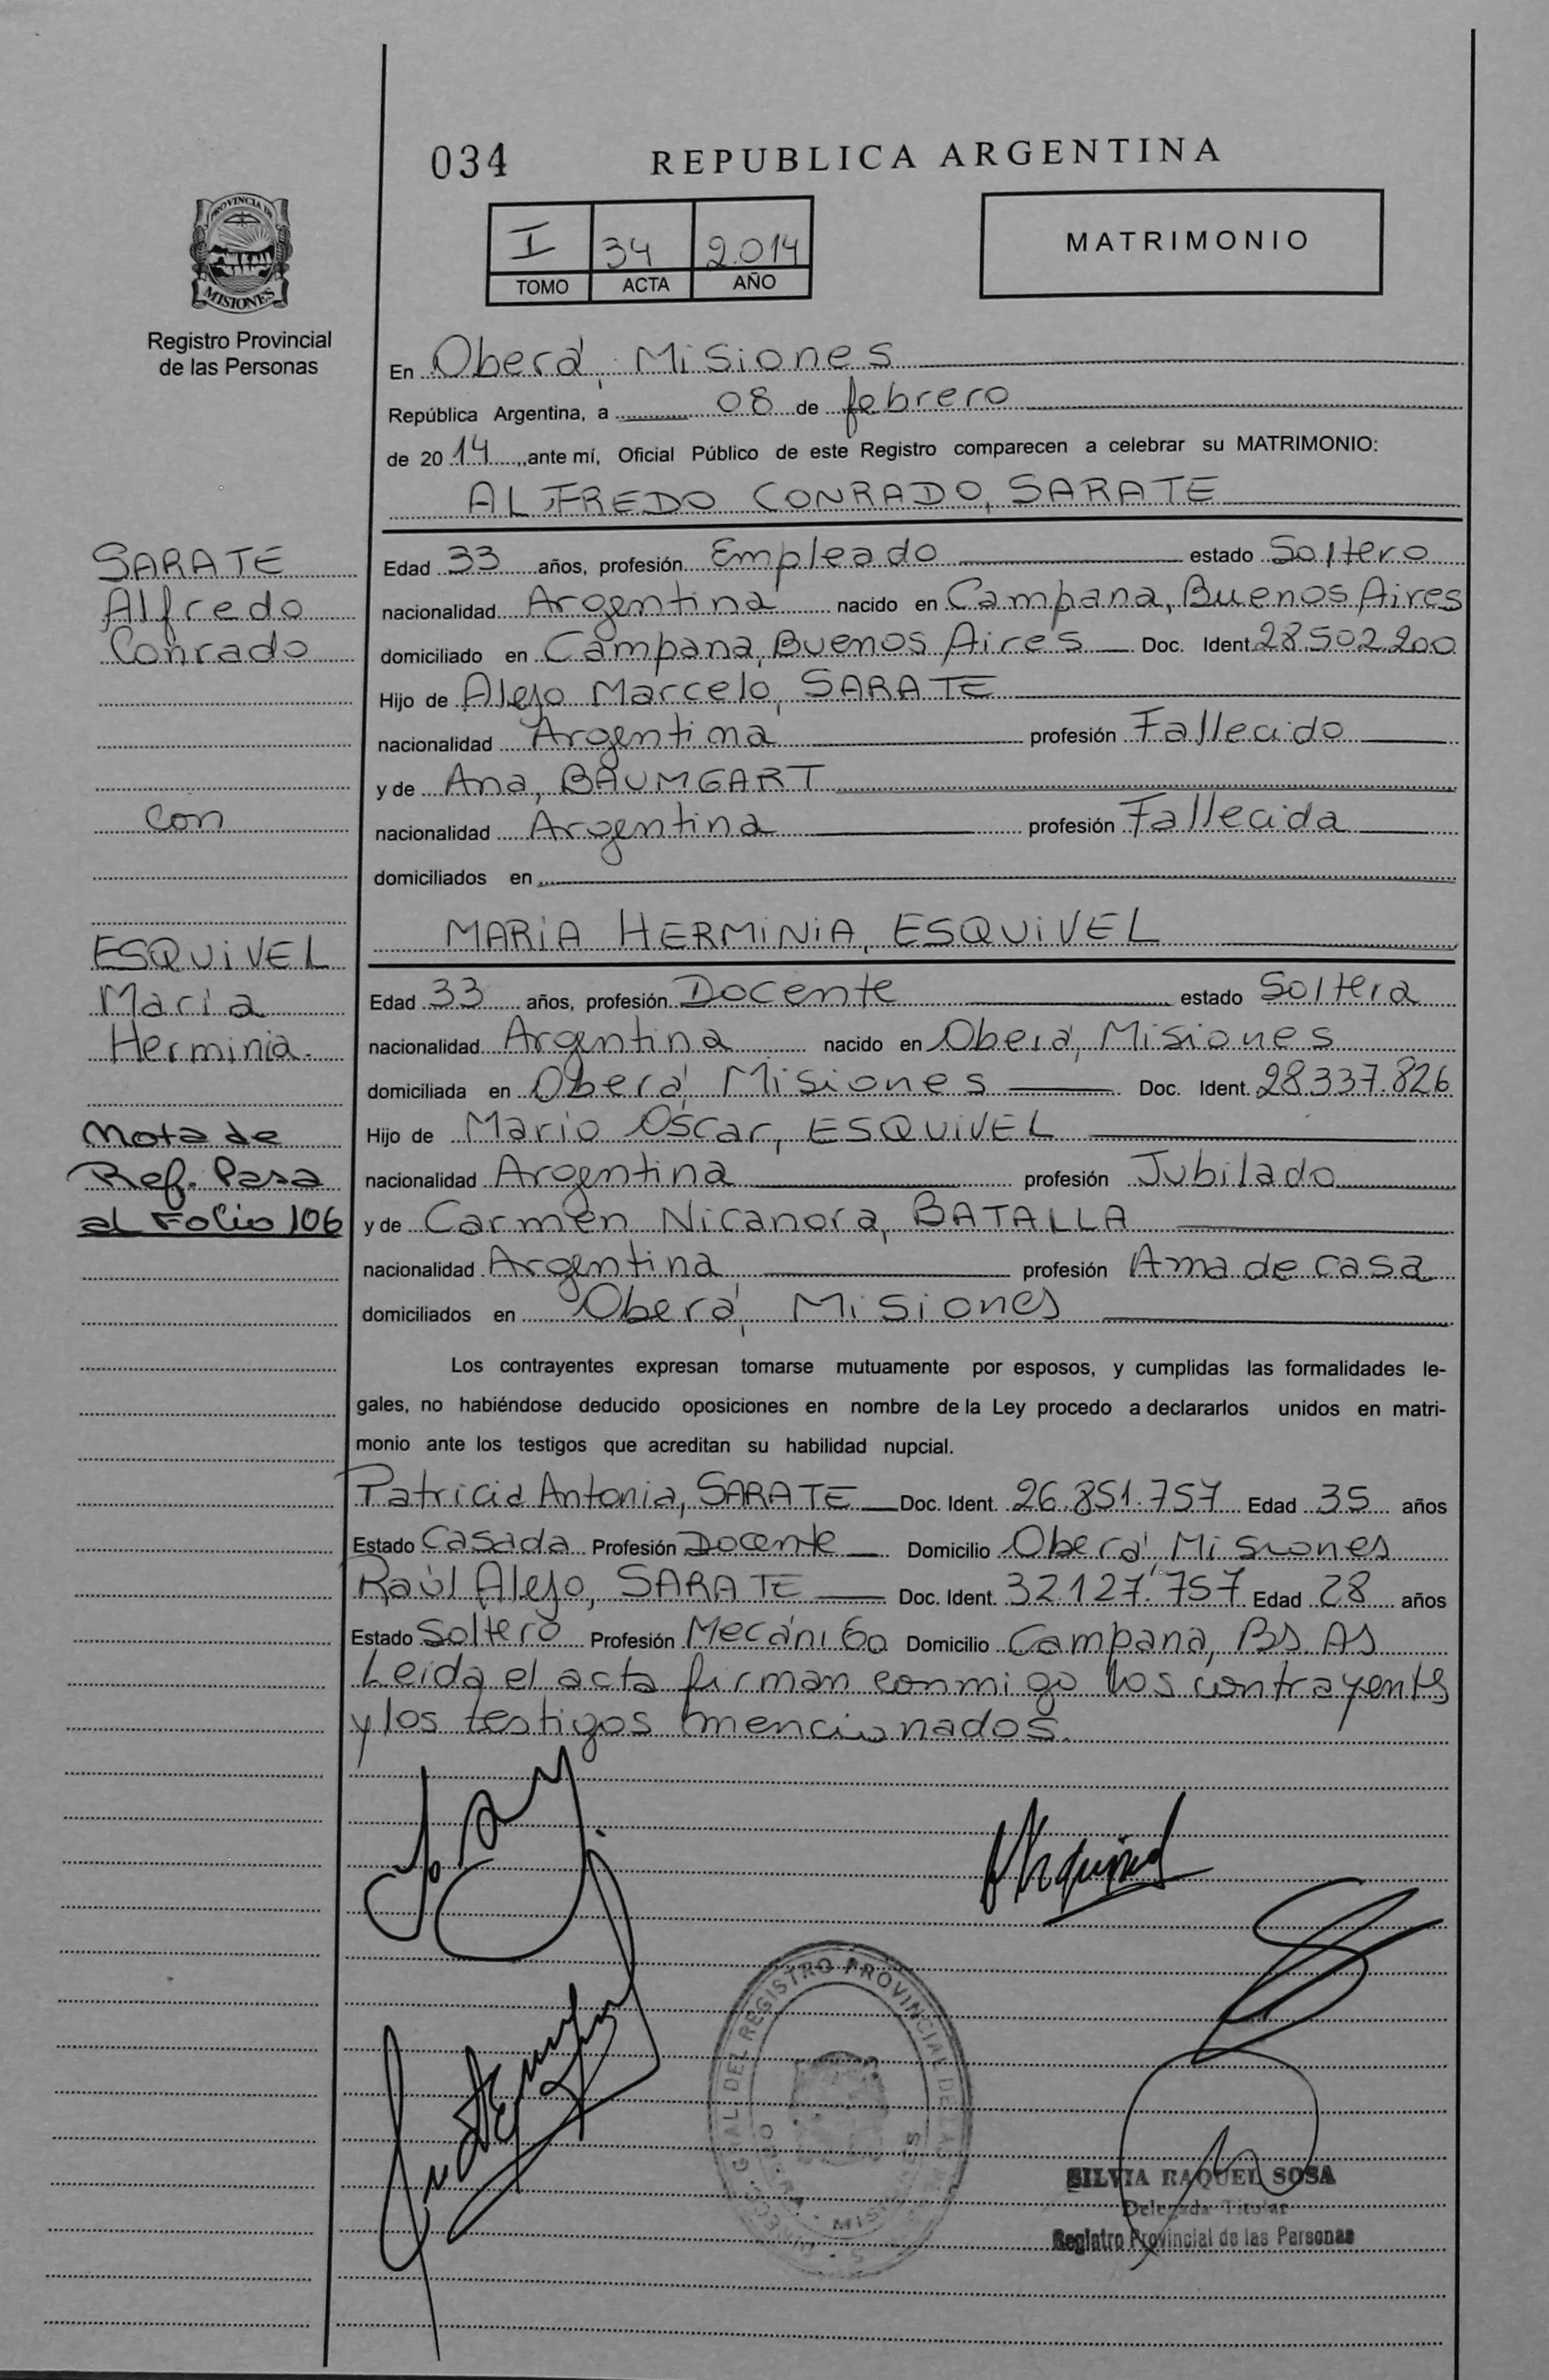 034 REPUBLICA ARGENTINA
PROVINCIA DE
MISIONES
Registro Provincial
de las Personas
I 34 2.014
TOMO ACTA AÑO
MATRIMONIO
En Oberá, Misiones
República Argentina, a 08 de febrero
de 2014, ante mí, Oficial Público de este Registro comparecen a celebrar su MATRIMONIO:
ALFREDO CONRADO, SARATE
SARATE
Alfredo
Conrado
con
ESQUIVEL
María
Herminia.
Nota de
Ref. Pasa
al Folio 106
Edad 33 años, profesión Empleado estado Soltero
nacionalidad Argentina nacido en Campana, Buenos Aires
domiciliado en Campana, Buenos Aires Doc. Ident. 28.502.200
Hijo de Alejo Marcelo, SARATE
nacionalidad Argentina profesión Fallecido
y de Ana, BAUMGART
nacionalidad Argentina profesión Fallecida
domiciliados en
MARIA HERMINIA, ESQUIVEL
Edad 33 años, profesión Docente estado Soltera
nacionalidad Argentina nacido en Oberá, Misiones
domiciliada en Oberá, Misiones Doc. Ident. 28.337.826
Hijo de Mario Oscar, ESQUIVEL
nacionalidad Argentina profesión Jubilado
y de Carmen Nicanora, BATALLA
nacionalidad Argentina profesión Ama de casa
domiciliados en Oberá, Misiones
Los contrayentes expresan tomarse mutuamente por esposos, y cumplidas las formalidades le-
gales, no habiéndose deducido oposiciones en nombre de la Ley procedo a declararlos unidos en matri-
monio ante los testigos que acreditan su habilidad nupcial.
Patricia Antonia, SARATE Doc. Ident. 26.851.757 Edad 35 años
Estado Casada Profesión Docente Domicilio Oberá, Misiones
Raúl Alejo, SARATE Doc. Ident. 32.127.757 Edad 28 años
Estado Soltero Profesión Mecánico Domicilio Campana, Bs. As
Leida el acta firman conmigo los contrayentes
y los testigos mencionados.
GRAL DEL REGISTRO PROVINCIAL DE LAS
SILVIA RAQUEL SOSA
Delegada Titular
Registro Provincial de las Personas